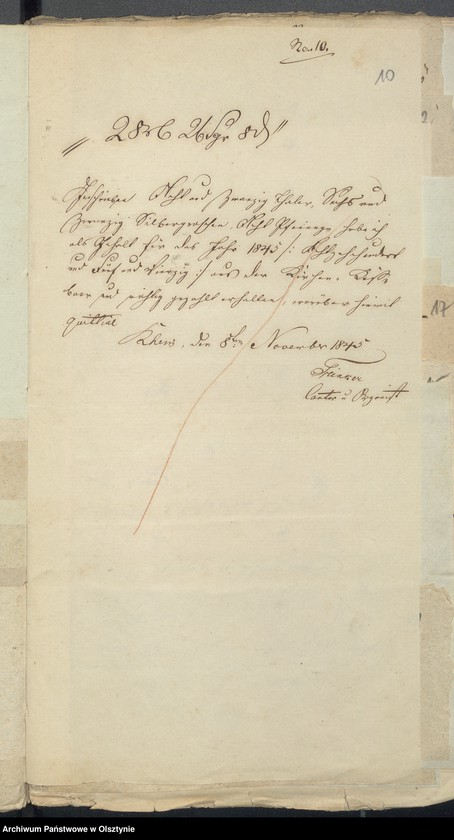 No. 10.
10
„ 28 rl 26 Sgr 8 d "
Acht und zwanzig Thaler, Sechs und
zwanzig Silbergroschen, Acht Pfennige, habe ich
als Gehalt für das Jahr 1845 /: Achtzehnhundert
und Fünf und Vierzig :/ aus der Kirchen-Kasse
baar und richtig gezahlt erhalten, worüber hiermit
quittirt
den 8ten November 1845
Cantor u Organist
17
Archiwum Państwowe w Olsztynie